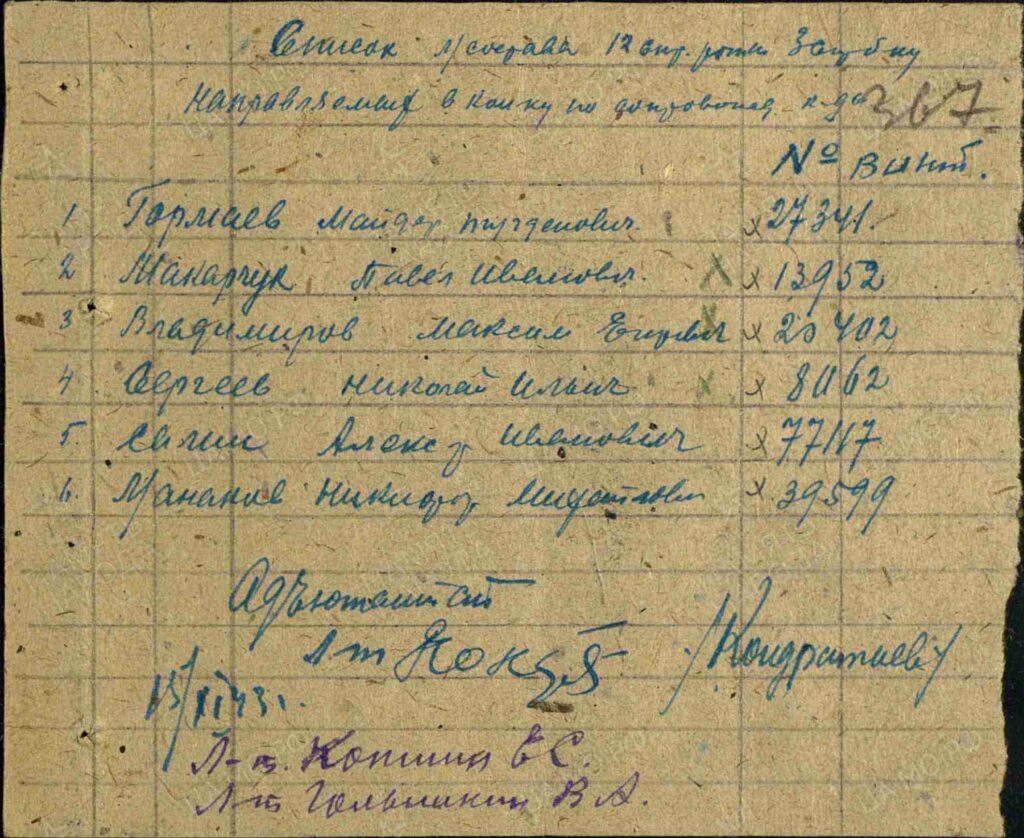 Список л/состава 12 стр. роты
Направляемых в по к-де 367
№ винт.
1 Гармаев Майдар х 27341.
2 Макарчук Павел Иванович. х х 13952
3 Владимиров Максим х 20402
4 Сергеев Николай Ильич х х 8062
5. Салин Алекс-др Иванович х 77117
6. Манаков Никифор х 39599
Адъютант ст
л-т /Кондратьев/
15/XI 43 г.
Л-т. Копшин Е С.
Л-т Гольникин В А.